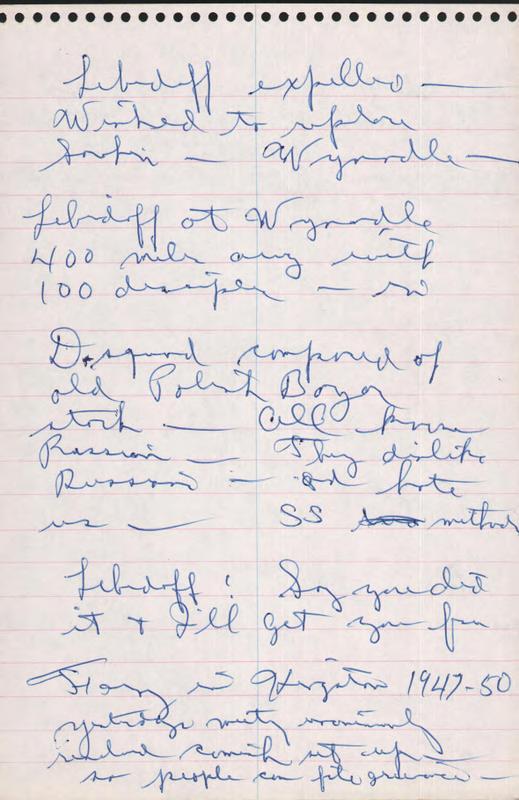 Lebedoff expelled —
Wished to replace
Sorokin — Wynndle —
Lebedoff at Wynndle
400 miles away with
100 disciples —
D. squad composed of
old Polish Boyar
stock — All know
Russian — They dislike
Russian — and hate
us — SS methods
Lebedoff: Say you did
it + I'll get you free
in Kingston 1947-50
yesterdays meeting
set up —
so people can file grievance —